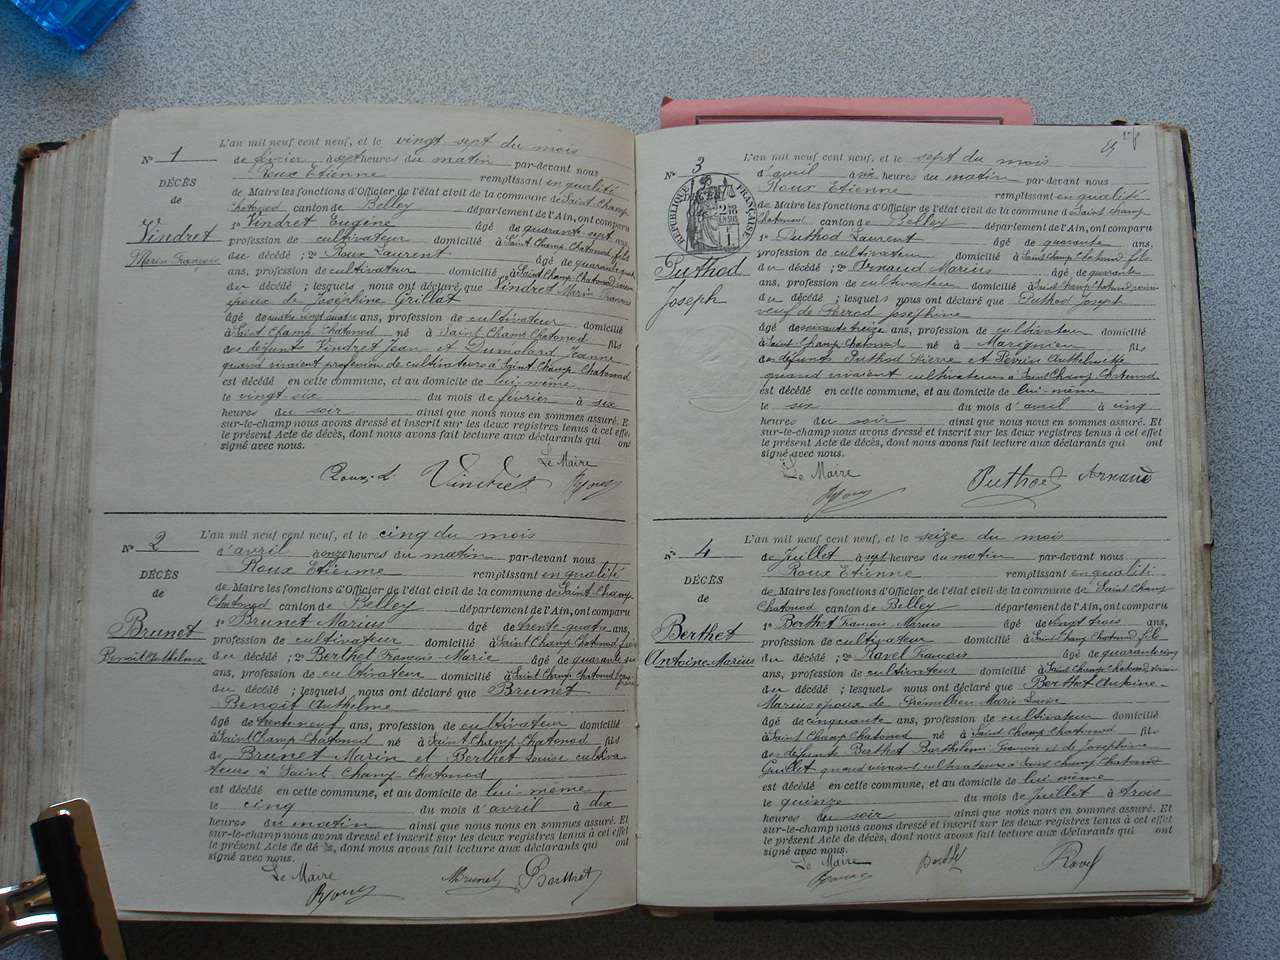 N° 1
DÉCÈS
de
Vindret
Marin François
L'an mil neuf cent neuf, et le vingt sept du mois
de février à sept heures du matin par-devant nous
Roux Etienne remplissant en qualité
de Maire les fonctions d'Officier de l'état civil de la commune de Saint Champ
Chatonod canton de Belley département de l'Ain, ont comparu
1° Vindret Eugène âgé de quarante sept ans,
profession de cultivateur domicilié à Saint Champ Chatonod fils
du décédé ; 2° Roux Laurent âgé de quarante
ans, profession de cultivateur domicilié à Saint Champ Chatonod voisin
du décédé ; lesquels nous ont déclaré que Vindret Marin François
époux de Joséphine Grillat
âgé de quatre vingt quatre ans, profession de cultivateur domicilié
à Saint Champ Chatonod né à Saint Champ Chatonod fils
de défunts Vindret Jean et Dumolard Jeanne
quand vivaient profession de cultivateurs à Saint Champ Chatonod
est décédé en cette commune, et au domicile de lui même
le vingt six du mois de février à six
heures du soir ainsi que nous nous en sommes assuré. Et
sur-le-champ nous avons dressé et inscrit sur les deux registres tenus à cet effet
le présent Acte de décès, dont nous avons fait lecture aux déclarants qui ont
signé avec nous.
Le Maire
Roux L Vindret Roux
N° 2
DÉCÈS
de
Brunet
Benoit Anthelme
L'an mil neuf cent neuf, et le cinq du mois
d'avril à onze heures du matin par-devant nous
Roux Etienne remplissant en qualité
de Maire les fonctions d'Officier de l'état civil de la commune de Saint Champ
Chatonod canton de Belley département de l'Ain, ont comparu
1° Brunet Marius âgé de trente quatre ans,
profession de cultivateur domicilié à Saint Champ Chatonod frère
du décédé ; 2° Berthet François Marie âgé de quarante six
ans, profession de cultivateur domicilié à Saint Champ Chatonod
du décédé ; lesquels nous ont déclaré que Brunet
Benoit Anthelme
âgé de trente neuf ans, profession de cultivateur domicilié
à Saint Champ Chatonod né à Saint Champ Chatonod fils
de Brunet Marin et Berthet Louise cultiva
teurs à Saint Champ Chatonod
est décédé en cette commune, et au domicile de lui-même
le cinq du mois d'avril à dix
heures du matin ainsi que nous nous en sommes assuré. Et
sur-le-champ nous avons dressé et inscrit sur les deux registres tenus à cet effet
le présent Acte de dé s, dont nous avons fait lecture aux déclarants qui ont
signé avec nous.
Le Maire
Roux Brunet Berthet
N° 3
RÉPUBLIQUE FRANÇAISE
Puthod
Joseph
L'an mil neuf cent neuf, et le sept du mois
d'avril à six heures du matin par-devant nous
Roux Etienne remplissant en qualité
de Maire les fonctions d'Officier de l'état civil de la commune de Saint Champ
Chatonod canton de Belley département de l'Ain, ont comparu
1° Puthod Laurent âgé de quarante ans,
profession de cultivateur domicilié à Saint Champ Chatonod fils
du décédé ; 2° Arnaud Marius âgé de quarante
ans, profession de cultivateur domicilié à Saint Champ Chatonod voisin
du décédé ; lesquels nous ont déclaré que Puthod Joseph
veuf de Perrod Joséphine
âgé de soixante treize ans, profession de cultivateur domicilié
à Saint Champ Chatonod né à Marignieu fils
des défunts Puthod Pierre et Perrin Anthelmette
quand vivaient cultivateurs à Saint Champ Chatonod
est décédé en cette commune, et au domicile de lui-même
le six du mois d'avril à cinq
heures du soir ainsi que nous nous en sommes assuré. Et
sur-le-champ nous avons dressé et inscrit sur les deux registres tenus à cet effet
le présent Acte de décès, dont nous avons fait lecture aux déclarants qui ont
signé avec nous.
Le Maire
Roux Puthod Arnaud
N° 4
DÉCÈS
de
Berthet
Antoine Marius
L'an mil neuf cent neuf, et le seize du mois
de Juillet à sept heures du matin par-devant nous
Roux Etienne remplissant en qualité
de Maire les fonctions d'Officier de l'état civil de la commune de Saint Champ
Chatonod canton de Belley département de l'Ain, ont comparu
1° Berthet François Marius âgé de vingt trois ans,
profession de cultivateur domicilié à Saint Champ Chatonod fils
du décédé ; 2° Ravel François âgé de quarante cinq
ans, profession de cultivateur domicilié à Saint Champ Chatonod voisin
du décédé ; lesquels nous ont déclaré que Berthet Antoine
Marius époux de Marie Louise
âgé de cinquante ans, profession de cultivateur domicilié
à Saint Champ Chatonod né à Saint Champ Chatonod fils
des défunts Berthet Barthélemi François et de Joséphine
Guillet quand vivaient cultivateurs à Saint Champ Chatonod
est décédé en cette commune, et au domicile de lui même
le quinze du mois de Juillet à trois
heures du soir ainsi que nous nous en sommes assuré. Et
sur-le-champ nous avons dressé et inscrit sur les deux registres tenus à cet effet
le présent Acte de décès, dont nous avons fait lecture aux déclarants qui ont
signé avec nous.
Le Maire
Roux Berthet Ravel